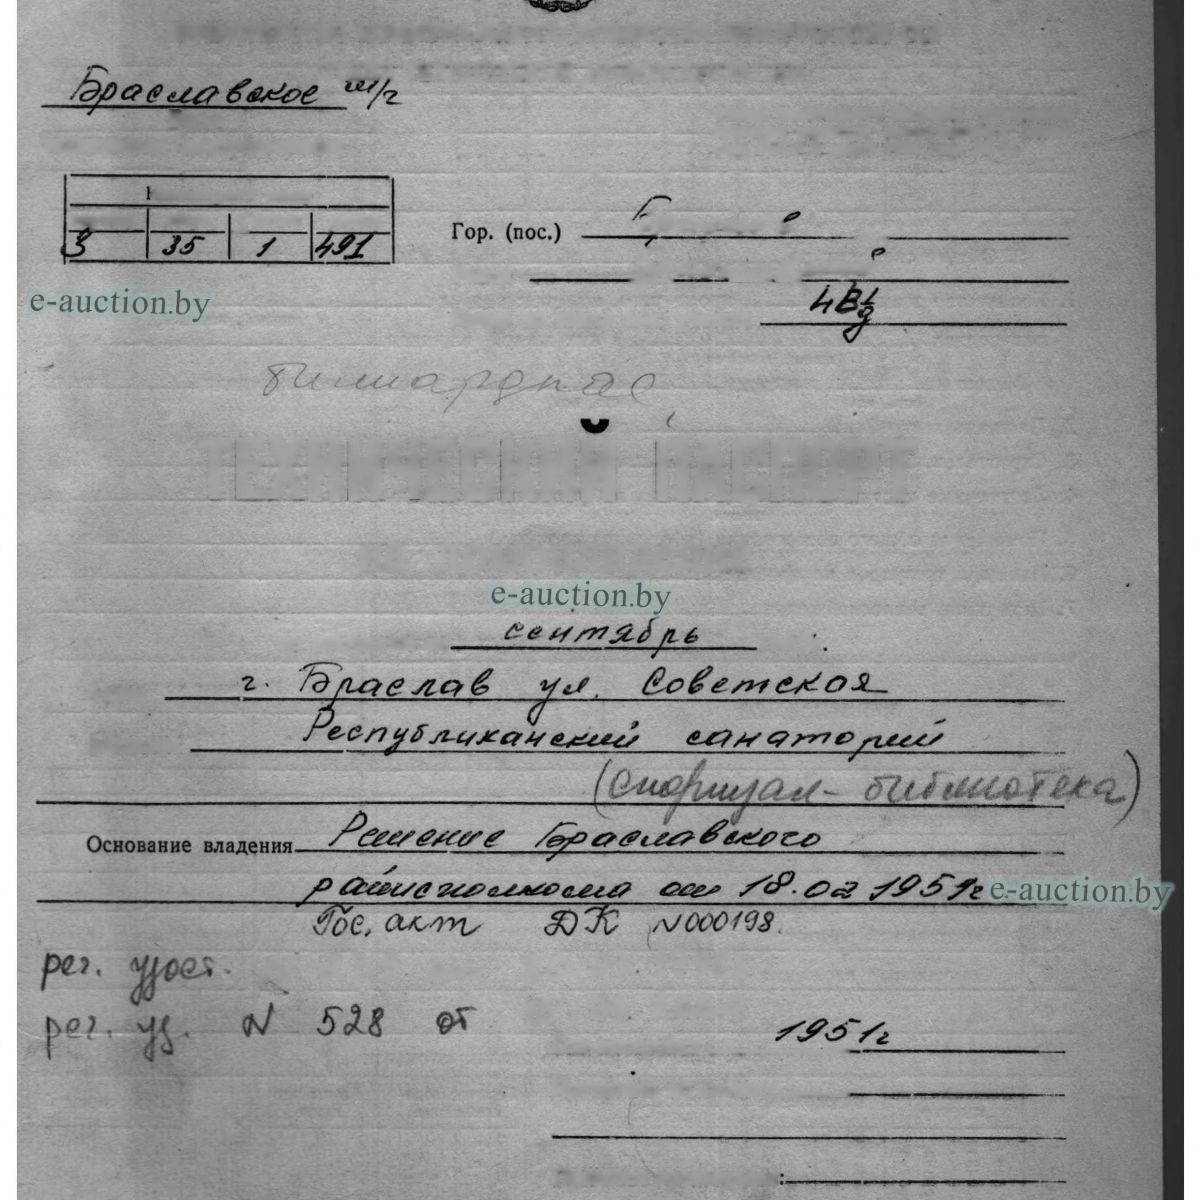 Браславское ш/г
3 35 1 491
Гор. (пос.)
e-auction.by
4В 1/д
ТЕХНИЧЕСКИЙ ПАСПОРТ
e-auction.by
сентябрь
г. Браслав ул. Советская
Республиканский санаторий
(спортзал-библиотека)
Основание владения Решение Браславского
райисполкома от 18.02 1951г
e-auction.by
Гос. акт ДК N000198.
рег. удост.
рег. уд. N 528 от
1951г